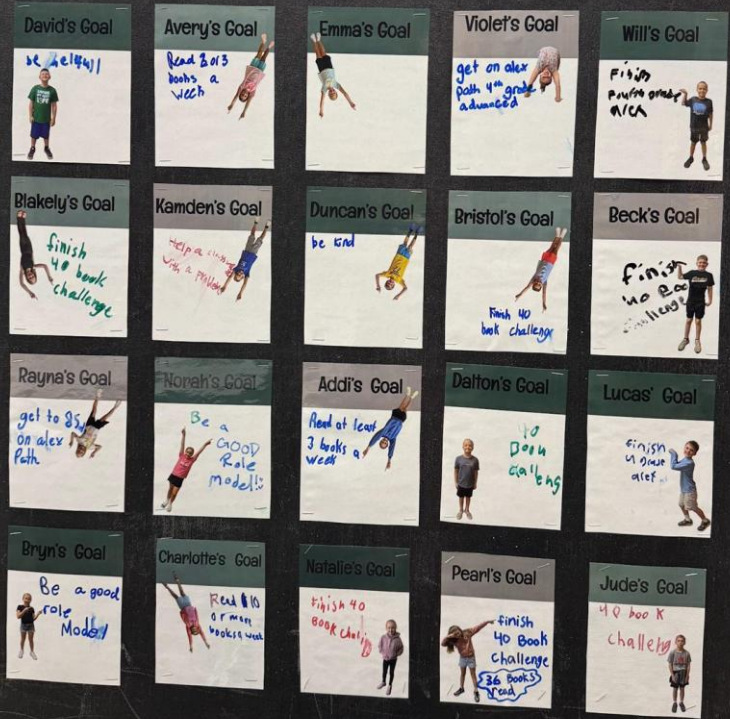 David's Goal
be helfull
Avery's Goal
Read 2 or 3
books a
week
Emma's Goal
Violet's Goal
get on alex
path 4th grade
advanced
Will's Goal
Finish
fourth grade
alex
Blakely's Goal
finish
40 book
challenge
Kamden's Goal
Help a class
with a problem
Duncan's Goal
be kind
Bristol's Goal
Finish 40
book challenge
Beck's Goal
finish
40 Boo
challenge
Rayna's Goal
get to 85
on alex
Path
Norah's Goal
Be a
GOOD
Role
Model!
Addi's Goal
Read at least
3 books a
week
Dalton's Goal
40
Book
challeng
Lucas' Goal
finish
4 grade
alex
Bryn's Goal
Be a good
role
Model
Charlotte's Goal
Read 10
or more
books a week
Natalie's Goal
finish 40
BOOK
Pearl's Goal
finish
40 Book
Challenge
36 Books
read
Jude's Goal
40 book
challeng